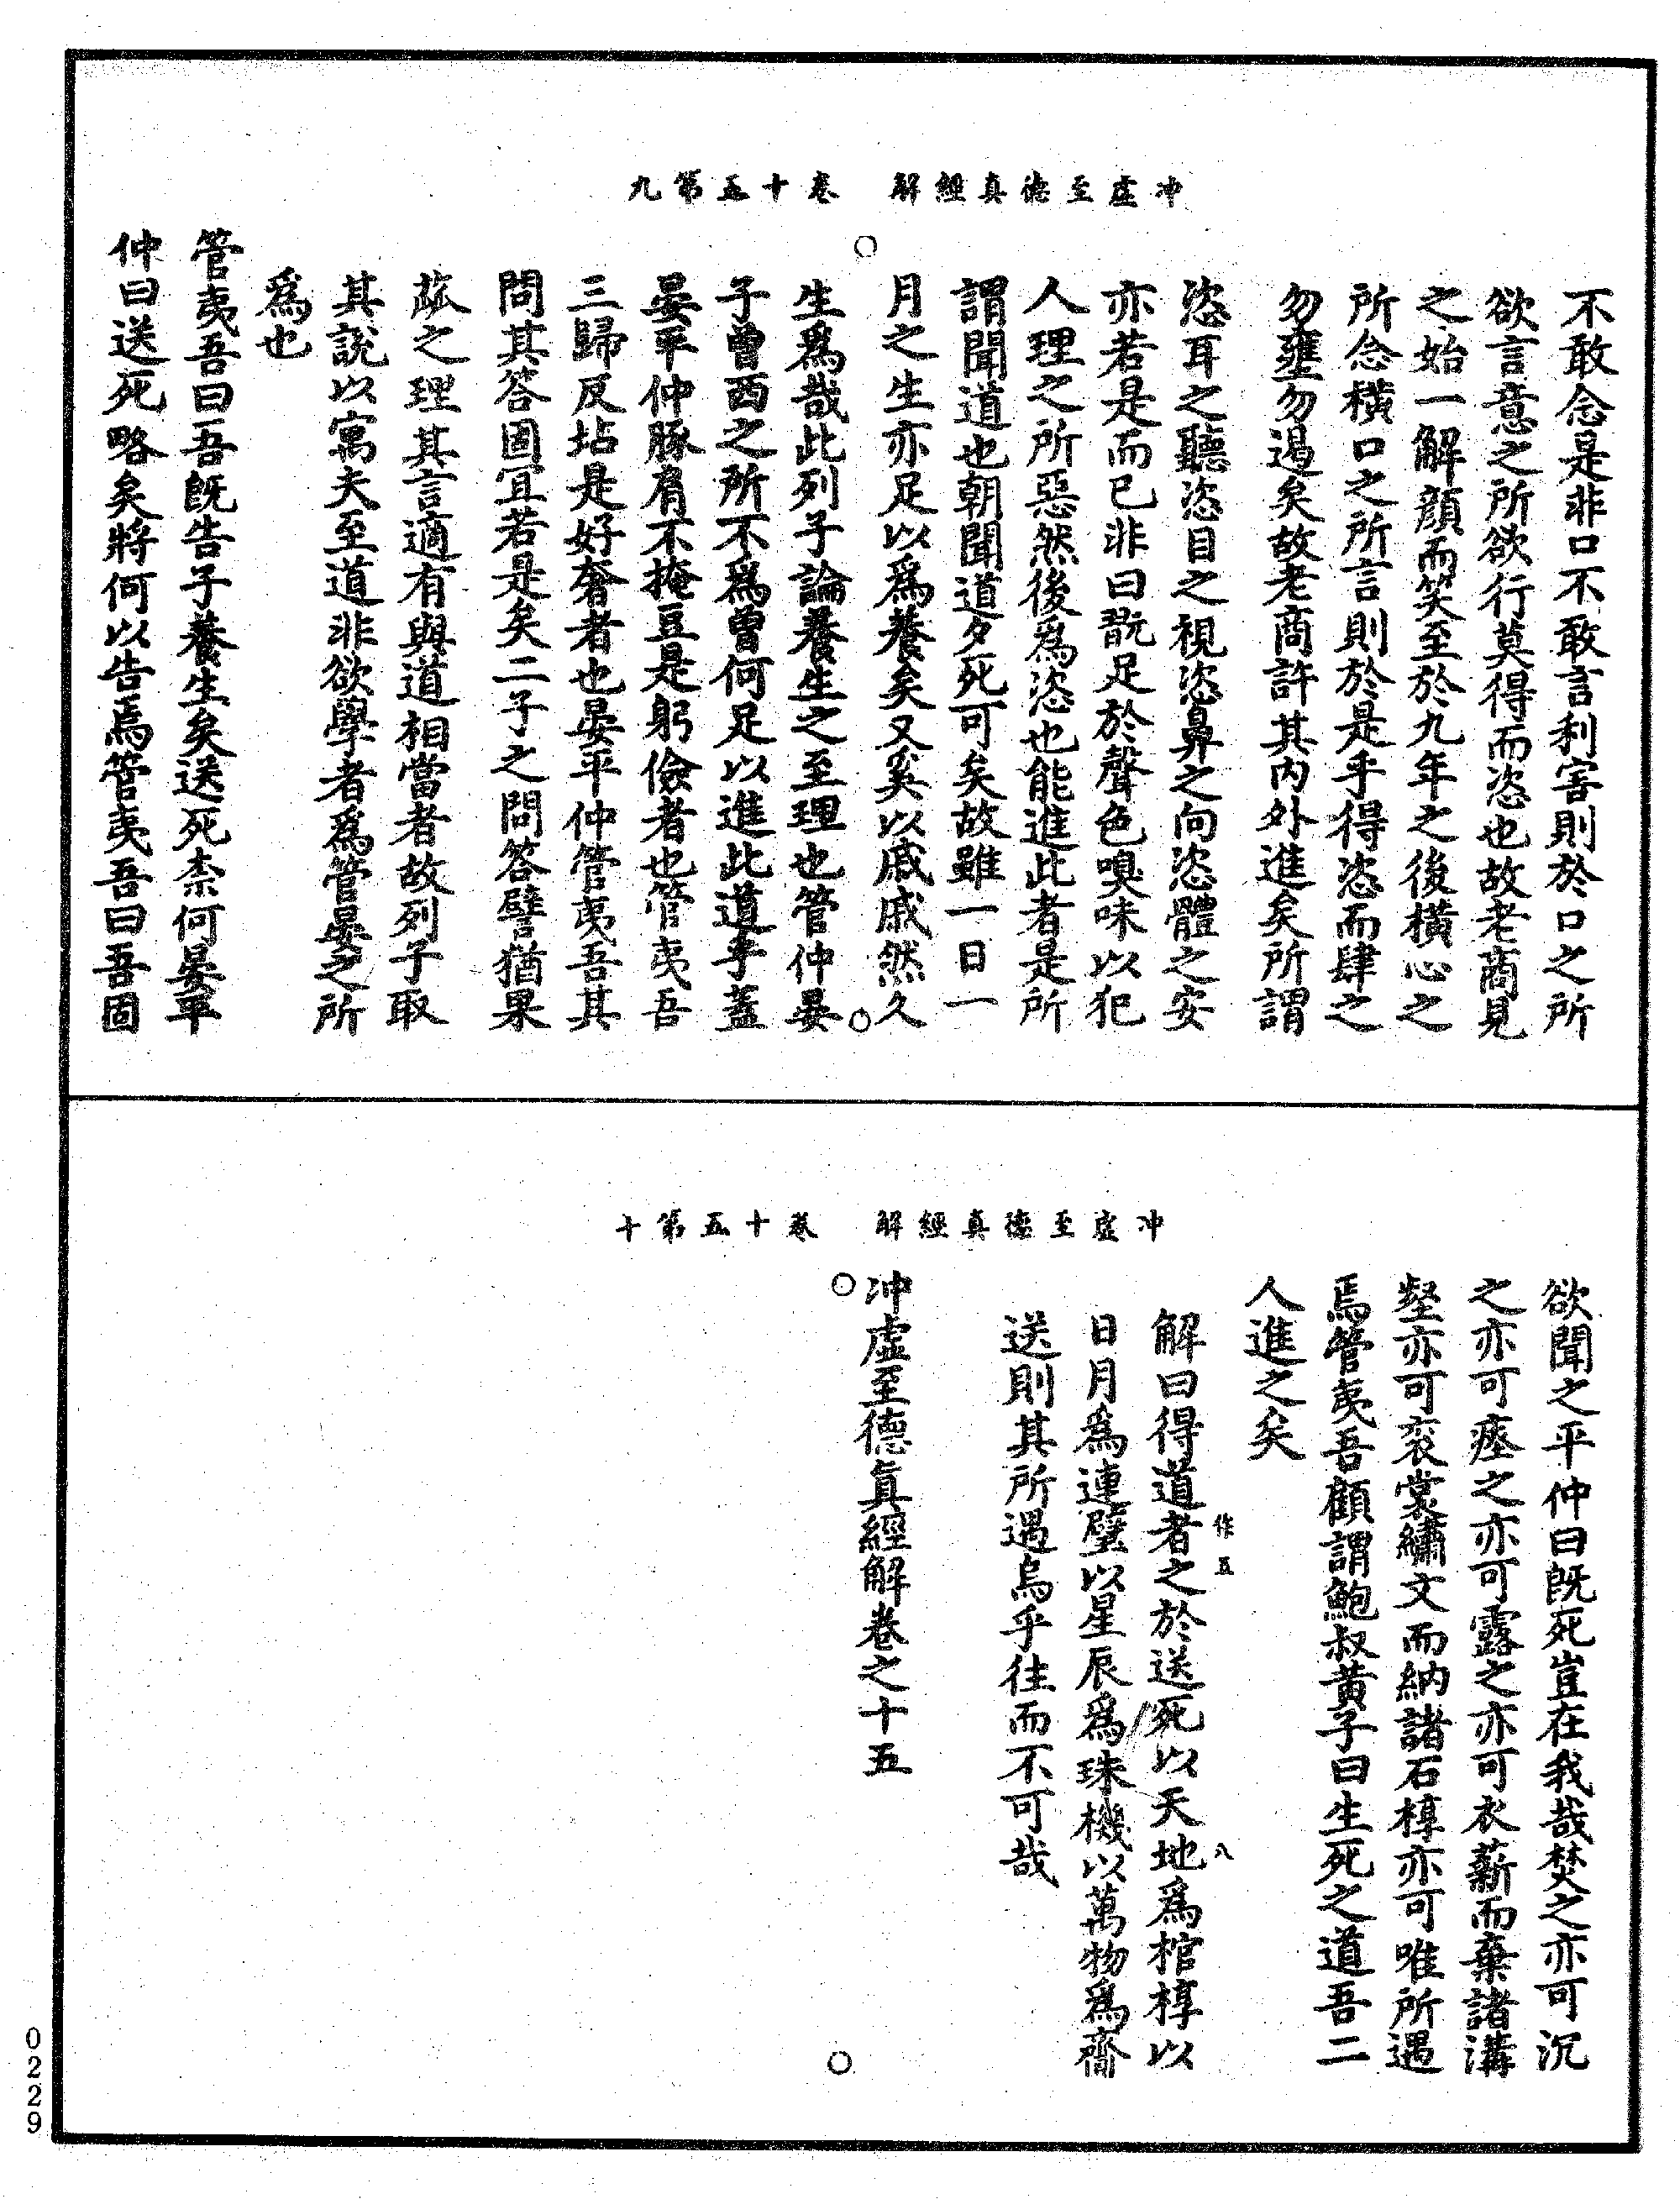 冲虛至德真經解　卷十五第九
不敢念是非口不敢言利害則於口之所
欲言意之所欲行莫得而恣也故老商見
之始一解顏而笑至於九年之後橫心之
所念橫口之所言則於是乎得恣而肆之
勿壅勿遏矣故老商許其內外進矣所謂
恣耳之聽恣目之視恣鼻之向恣體之安
亦若是而已非曰翫足於聲色嗅味以犯
人理之所惡然後爲恣也能進此者是所
謂聞道也朝聞道夕死可矣故雖一日一
月之生亦足以爲養矣又奚以戚戚然久
生爲哉此列子論養生之至理也管仲晏
子曾西之所不爲曾何足以進此道乎蓋
晏平仲豚肩不掩豆是躬儉者也管夷吾
三歸反坫是好奢者也晏平仲管夷吾其
問其答固宜若是矣二子之問答譬猶果
蓏之理其言適有與道相當者故列子取
其說以寓夫至道非欲學者爲管晏之所
爲也
管夷吾曰吾既告子養生矣送死柰何晏平
仲曰送死略矣將何以告焉管夷吾曰吾固
冲虛至德真經解　卷十五第十
欲聞之平仲曰既死豈在我哉焚之亦可沉
之亦可瘞之亦可露之亦可衣薪而棄諸溝
壑亦可衮裳繡文而納諸石椁亦可唯所遇
焉管夷吾顧謂鮑叔黃子曰生死之道吾二
人進之矣
作五　八
解曰得道者之於送死以天地爲棺椁以
日月爲連璧以星辰爲珠機以萬物爲齎
送則其所遇烏乎往而不可哉
冲虛至德眞經解卷之十五
0229